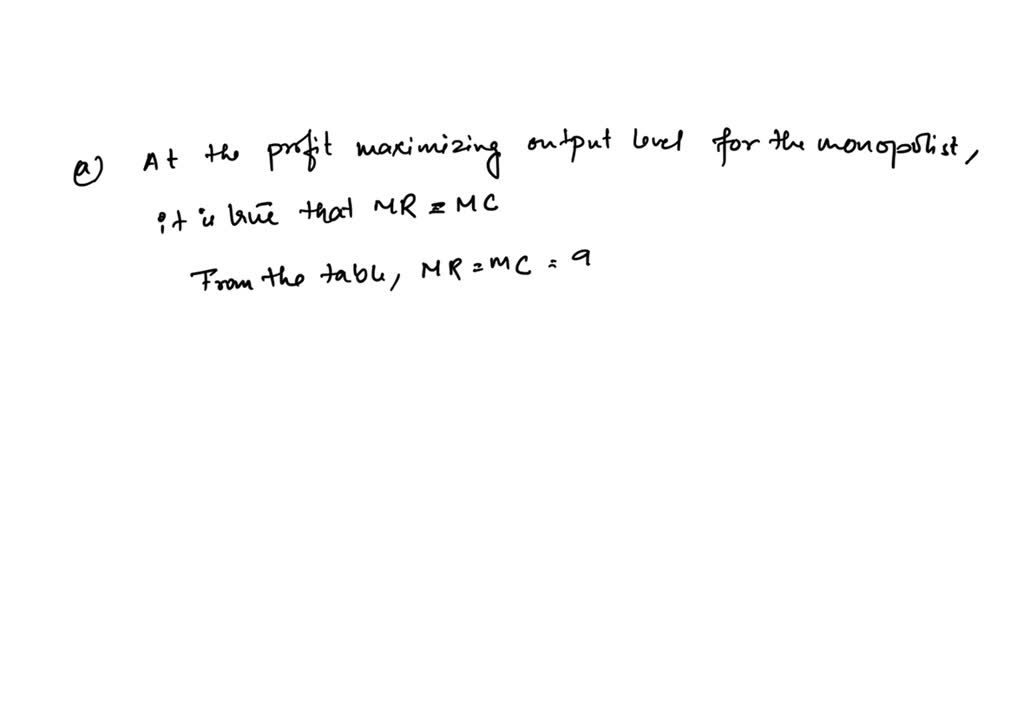 a) At the profit maximizing output level for the monopolist,
it is true that MR = MC
From the table, MR = MC = 9